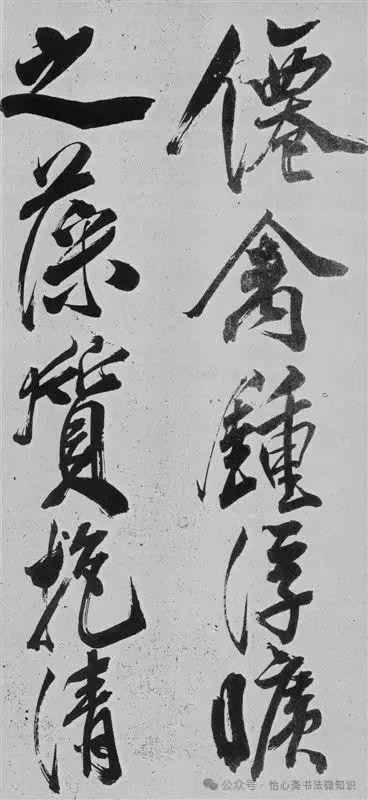 僊禽鍾浮曠
之藻質抱清
公众号 · 怡心斋书法微知识